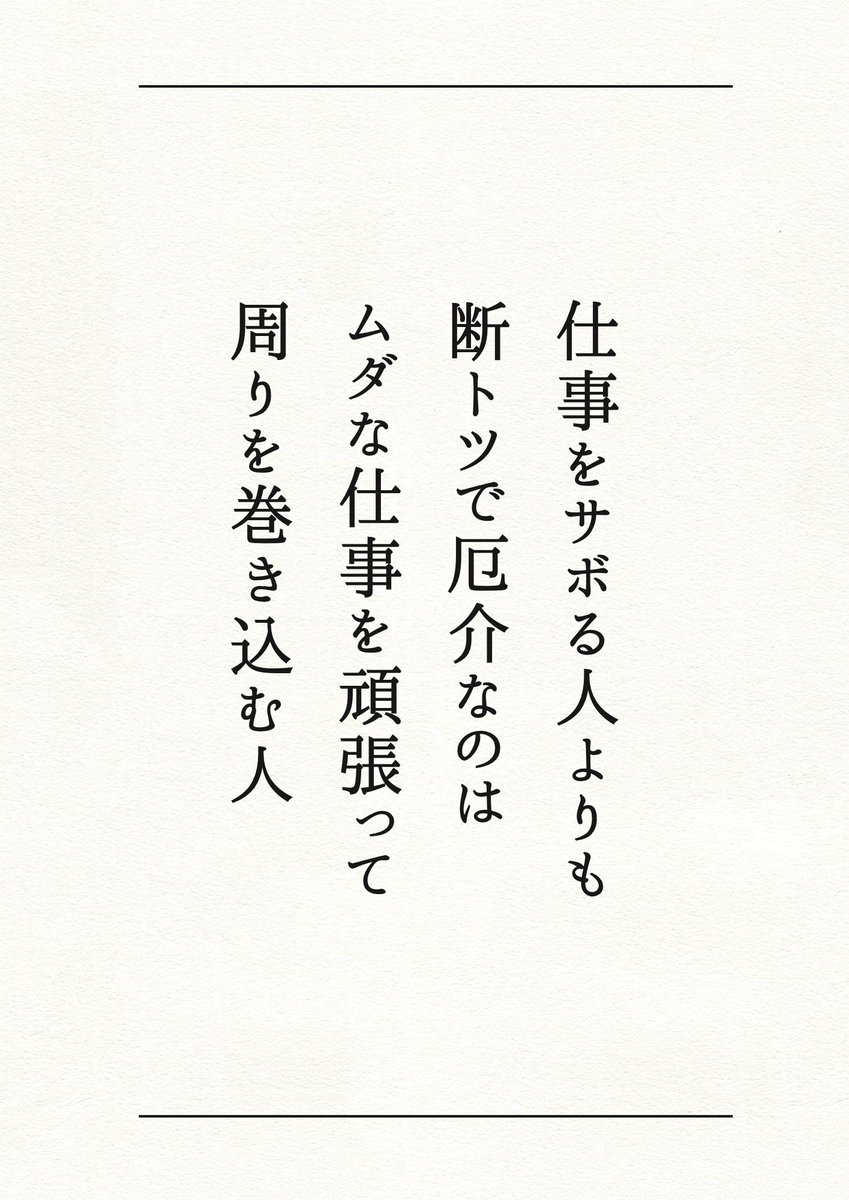 仕事をサボる人よりも
断トツで厄介なのは
ムダな仕事を頑張って
周りを巻き込む人